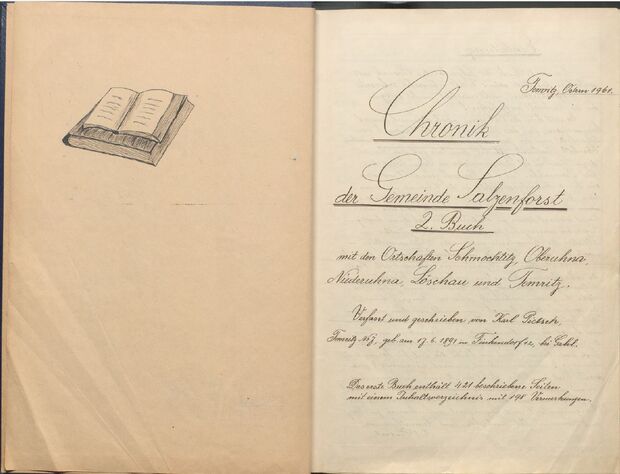 Temritz, Ostern 1961.
Chronik
der Gemeinde Salzenforst
2. Buch
mit den Ortschaften Schmochtitz, Oberuhna,
Niederuhna, Löschau und Temritz.
Verfasst und geschrieben von Karl Pietsch,
Temritz Nr 7, geb. am 17.6.1891 in
Das erste Buch enthält 421 beschriebene Seiten
mit einem Inhaltsverzeichnis mit 198 Vermerkungen.